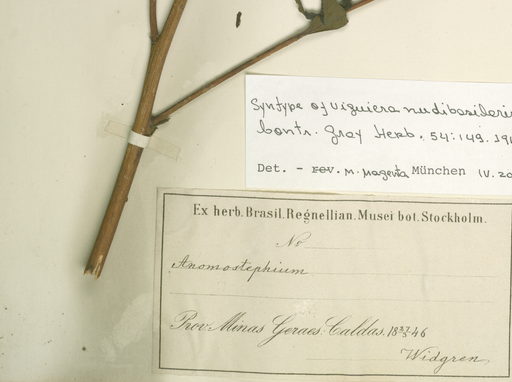 Syntype of Viguiera nudibasilaris
Contr. Gray Herb. 54:149. 191
Det. – Rev. M. Magenta München IV.20
Ex herb. Brasil. Regnellian. Musei bot. Stockholm.
No
Anomostephium
Prov. Minas Geraes. Caldas. 18 46
Widgren.